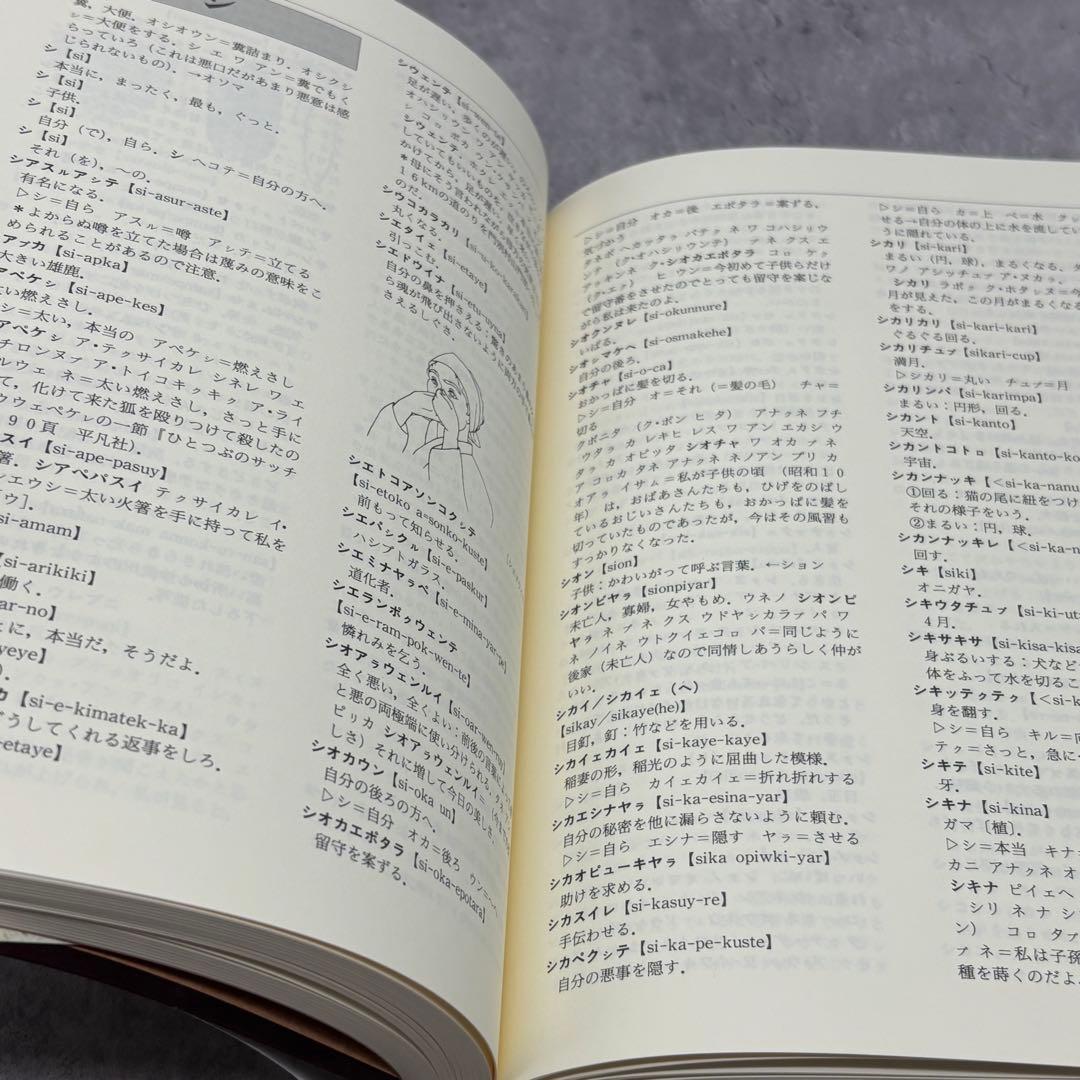 シ
糞，大便．オシオウン＝糞詰まり．オシクシ
シ＝大便をする．シ エ ワ アン＝糞でもく
らっていろ（これは悪口だがあまり悪意は感
じられないもの）．→オソマ
シ【si】
本当に，まったく，最も，ぐっと．
シ【si】
子供．
シ【si】
自分（で），自ら．シ ヘコテ＝自分の方へ．
シ【si】
それ（を），〜の．
シアスㇽアㇱテ【si-asur-aste】
有名になる．
▷シ＝自ら アスㇽ＝噂 アㇱテ＝立てる
＊よからぬ噂を立てた場合は蔑みの意味をこ
められることがあるので注意．
アッカ【si-apka】
大きい雄鹿．
アペケㇱ【si-ape-kes】
い燃えさし．
シ＝太い，本当の アペケㇱ＝燃えさし
アペケㇱ ア・テㇰサイカレ シネレ ワ エ
チロンヌㇷ゚ ア・トイコキㇰキㇰ ア・ライ
ルウェ ネ＝太い燃えさし，さっと手に
て，化けて来た狐を殴りつけて殺したの
ウウェペケㇾの一節『ひとつぶのサッチ
９０頁 平凡社）．
スイ【si-ape-pasuy】
箸．シアペパスイ テㇰサイカレ イ・
シエウシ＝太い火箸を手に持って私を
ゥ］．
si-amam】
【si-arikiki】
働く．
ar-no】
に，本当だ，そうだよ．
yeye】
カ【si-e-kimatek-ka】
うしてくれる返事をしろ．
-etaye】
シウェンテ【si-wen-te】
＊母に
１６kmの道のりを
のだ．
シウコカラカリ
丸くなる．
シエタイェ【si-etaye】
引っこむ．
シエドウイナ【si-etu-uyna】
自分の鼻を押さえる：驚きの
ら魂が飛び出さないように両方
さえるしぐさ．
シエトコアソンコクㇱテ
【si-etoko a=sonko-kuste】
前もって知らせる．
シエパㇱクㇽ【si-e-paskur】
ハシブトガラス．
シエミナヤㇻペ【si-e-mina-yar-pe】
道化者．
シエランポㇰウェンテ
【si-e-ram-pok-wen-te】
憐れみを乞う．
シオアㇻウェンルイ【si-oar-wen-ruy】
全く悪い，全くよい：前後の言葉
と悪の両極端に使い分けられる．
ピㇼカ シオアㇻウェンルイ＝
しさ）それに増して今日の美しさ．
シオカウン【si-oka un】
自分の後ろの方へ．
▷シ＝自分 オカ＝後ろ ウン＝へ
シオカエポタラ【si-oka-epotara】
留守を案ずる．
▷シ＝自分 オカ＝後 エポタラ＝案ずる，
気づかう
で留守番をさせたのでとっても留守を案じな
がら私は来たのよ．
シオクンヌレ【si-okunnure】
いばる．
シオㇱマケヘ【si-osmakehe】
自分の後ろ．
シオチャ【si-o-ca】
おかっぱに髪を切る．
▷シ＝自分 オ＝それ（＝髪の毛） チャ＝
切る
クポニタ（ク・ポン ヒ タ） アナㇰネ フチ
ウタㇻ カ レキヒ レス ワ アン エカシ ウ
タㇻ カ オピッタ シオチャ ワ オカ ㇷ゚ ネ
ア コㇿカ タネ アナㇰネ ネノアン プリ カ
オアㇻ イサㇺ＝私が子供の頃（昭和１０
年）は，おばあさんたちも，ひげをのばし
ているおじいさんたちも，おかっぱに髪を
切っていたものであったが，今はその風習も
すっかりなくなった．
シオン【sion】
子供：かわいがって呼ぶ言葉．←ション
シオンピヤㇻ【sionpiyar】
未亡人，寡婦，女やもめ．ウネノ シオンピ
ヤㇻ ネ ㇷ゚ ネ クス ウドヤㇱカラㇷ゚ パ ワ
ネ ノイネ ウトクイェコㇿ パ＝同じように
後家（未亡人）なので同情しあうらしく仲が
いい．
シカイ／シカイェ（ヘ）
【sikay／sikaye(he)】
目釘，釘：竹などを用いる．
シカイェカイェ【si-kaye-kaye】
稲妻の形，稲光のように屈曲した模様．
▷シ＝自ら カイェカイェ＝折れ折れする
シカエシナヤㇻ【si-ka-esina-yar】
自分の秘密を他に漏らさないように頼む．
▷シ＝自ら エシナ＝隠す ヤㇻ＝させる
シカオピューキヤㇻ【sika opiwki-yar】
助けを求める．
シカスイレ【si-kasuy-re】
手伝わせる．
シカペクㇱテ【si-ka-pe-kuste】
自分の悪事を隠す．
▷シ＝自ら カ＝上 ペ＝水 クㇱ
せる→自分の体の上に水を流してい
うに隠れている．
シカリ【si-kari】
まるい（円，球），まるくなる．
シカリ
月が見えた，この月がまるくなる
をする．
シカリカリ【si-kari-kari】
ぐるぐる回る．
シカリチュㇷ゚【sikari-cup】
満月．
▷シカリ＝丸い チュㇷ゚＝月
シカリンパ【si-karimpa】
まるい：円形，回る．
シカント【si-kanto】
天空．
シカントコトㇿ【si-kanto-ko
宇宙．
シカンナッキ【＜si-ka-nanu
①回る：猫の尾に紐をつけ
それの様子をいう．
②まるい：円，球．
シカンナッキレ【＜si-ka-na
回す．
シキ【siki】
オニガヤ．
シキウタチュㇷ゚【si-ki-ut
４月．
シキサキサ【si-kisa-kisa
身ぶるいする：犬など
体をふって水を切るこ
シキッテㇰテㇰ【＜si-k
身を翻す．
▷シ＝自ら キル＝向
テㇰ＝さっと，急に
シキテ【si-kite】
牙．
シキナ【si-kina】
ガマ〔植〕．
▷シ＝本当 キナ＝
カニ アナㇰネ オ
シキナ ピイェヘ
シリ ネ ナ シ
ン） コㇿ タㇷ゚
ㇷ゚ ネ＝私は子孫
種を蒔くのだよ．